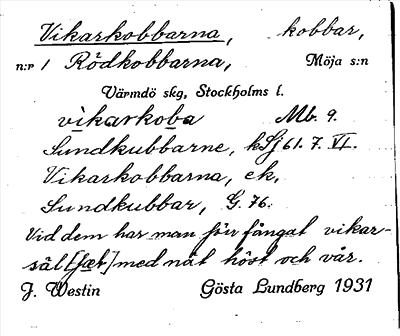 Vikarkobbarna, kobbar,
n:r 1 Rödkobbarna, Möja s:n
Värmdö skg, Stockholms l.
vikarkoba Mb. 9.
Sundkubbarne, kSj 61. 7. VI.
Vikarkobbarna, ek,
Sundkubbar, G. 76.
Vid dem har man förr fångat vikar-
säl [fæt] med nät höst och vår.
J. Westin Gösta Lundberg 1931